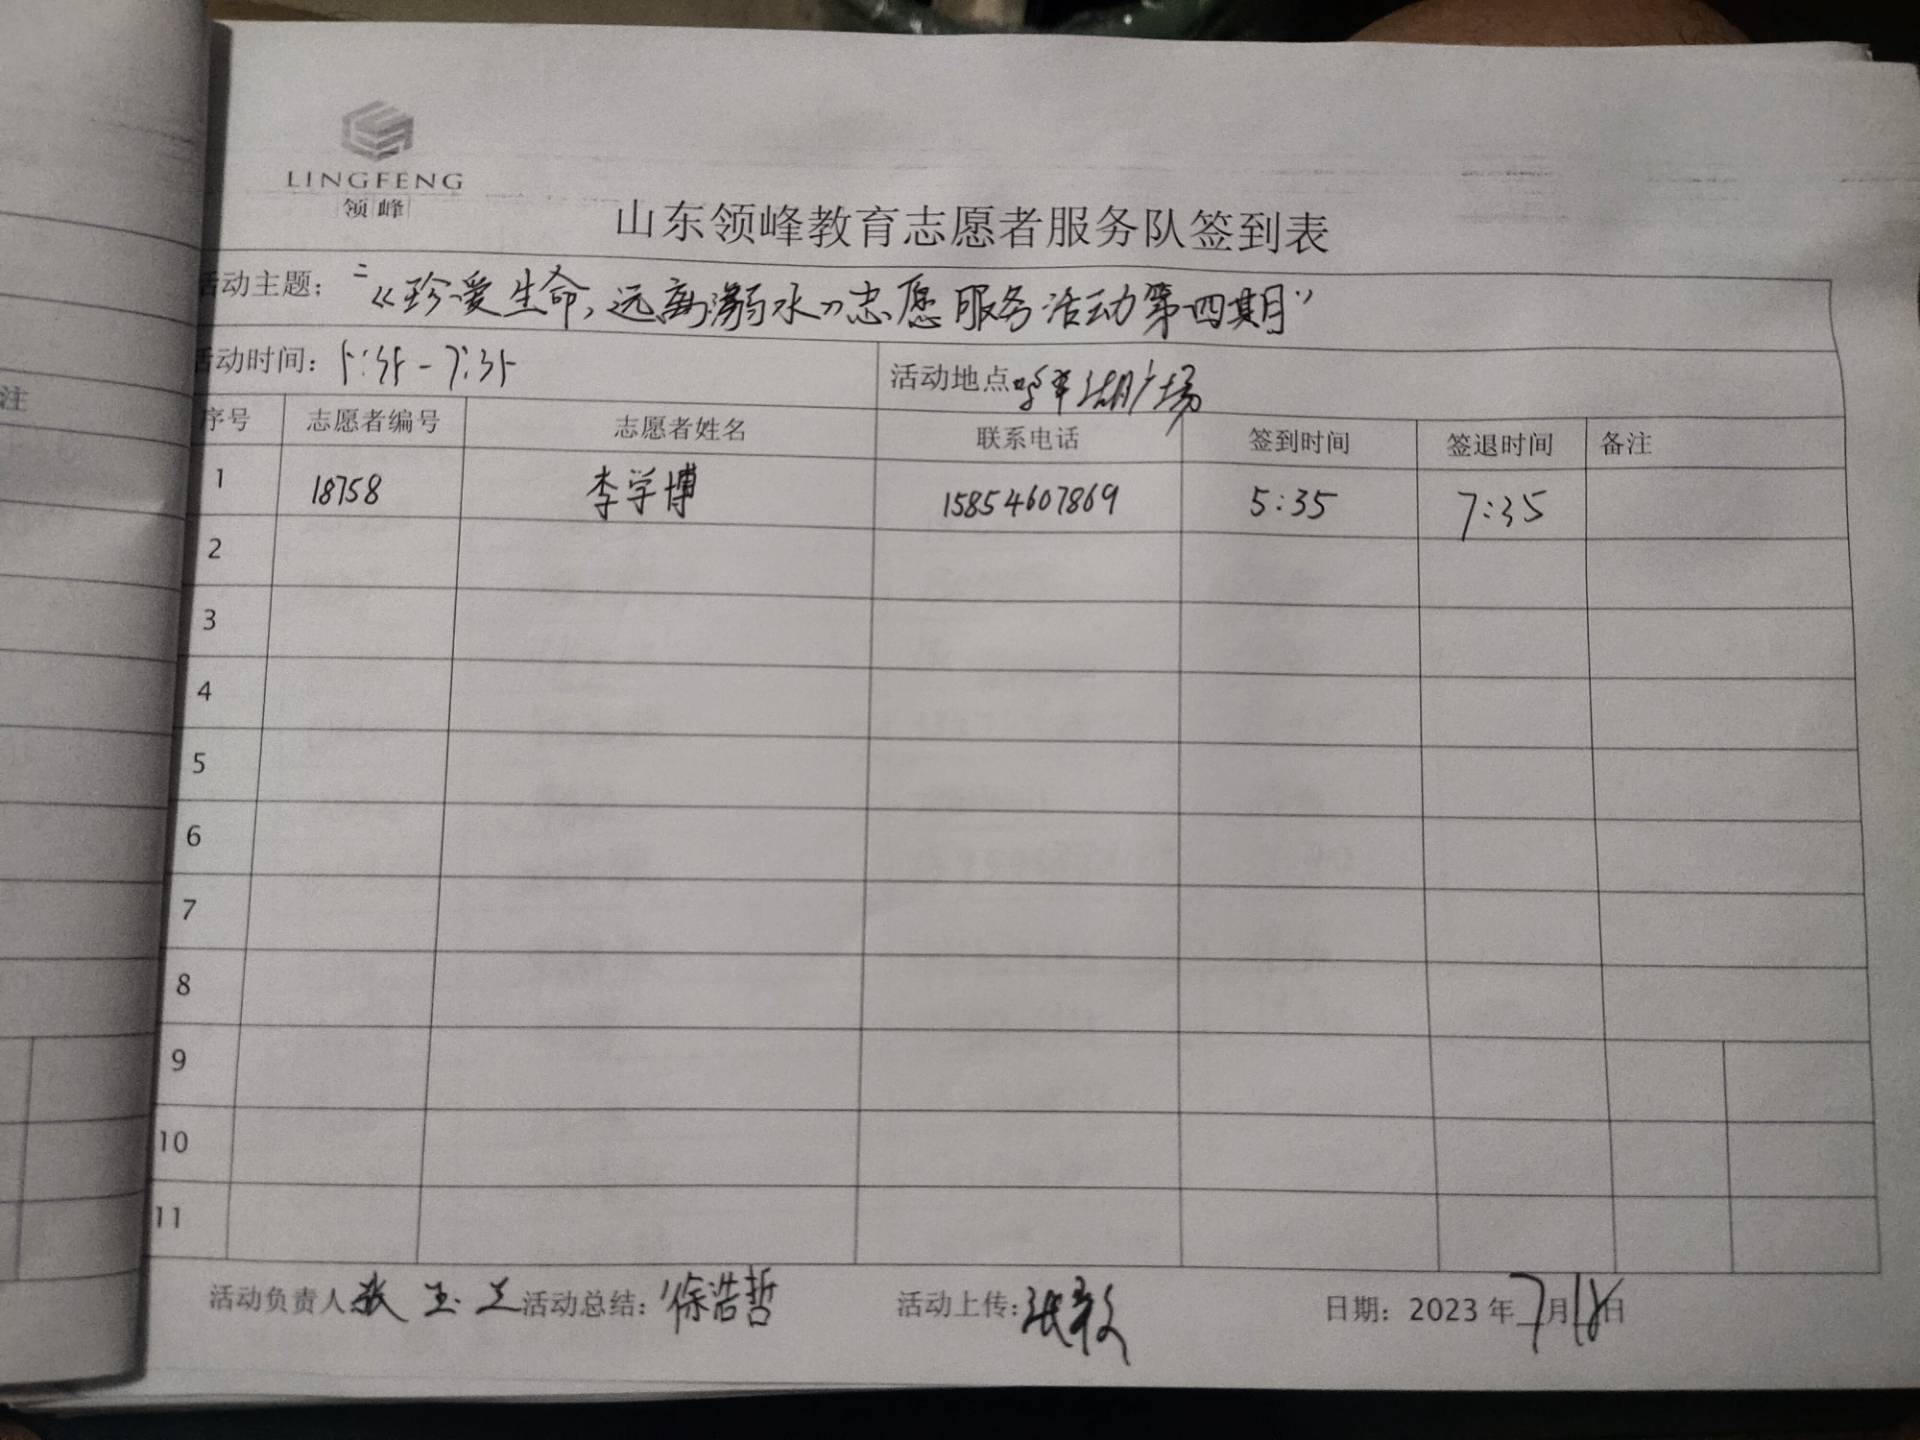 LINGFENG
领峰
山东领峰教育志愿者服务队签到表
注
活动主题：“《珍爱生命，远离溺水》志愿服务活动第四期”
活动时间：5:35-7:35 活动地点 湖广场
序号 志愿者编号 志愿者姓名 联系电话 签到时间 签退时间 备注
1 18758 李学博 15854607869 5:35 7:35
2
3
4
5
6
7
8
9
10
11
活动负责人 张玉兰 活动总结：徐浩哲 活动上传：张 日期：2023年7月18日